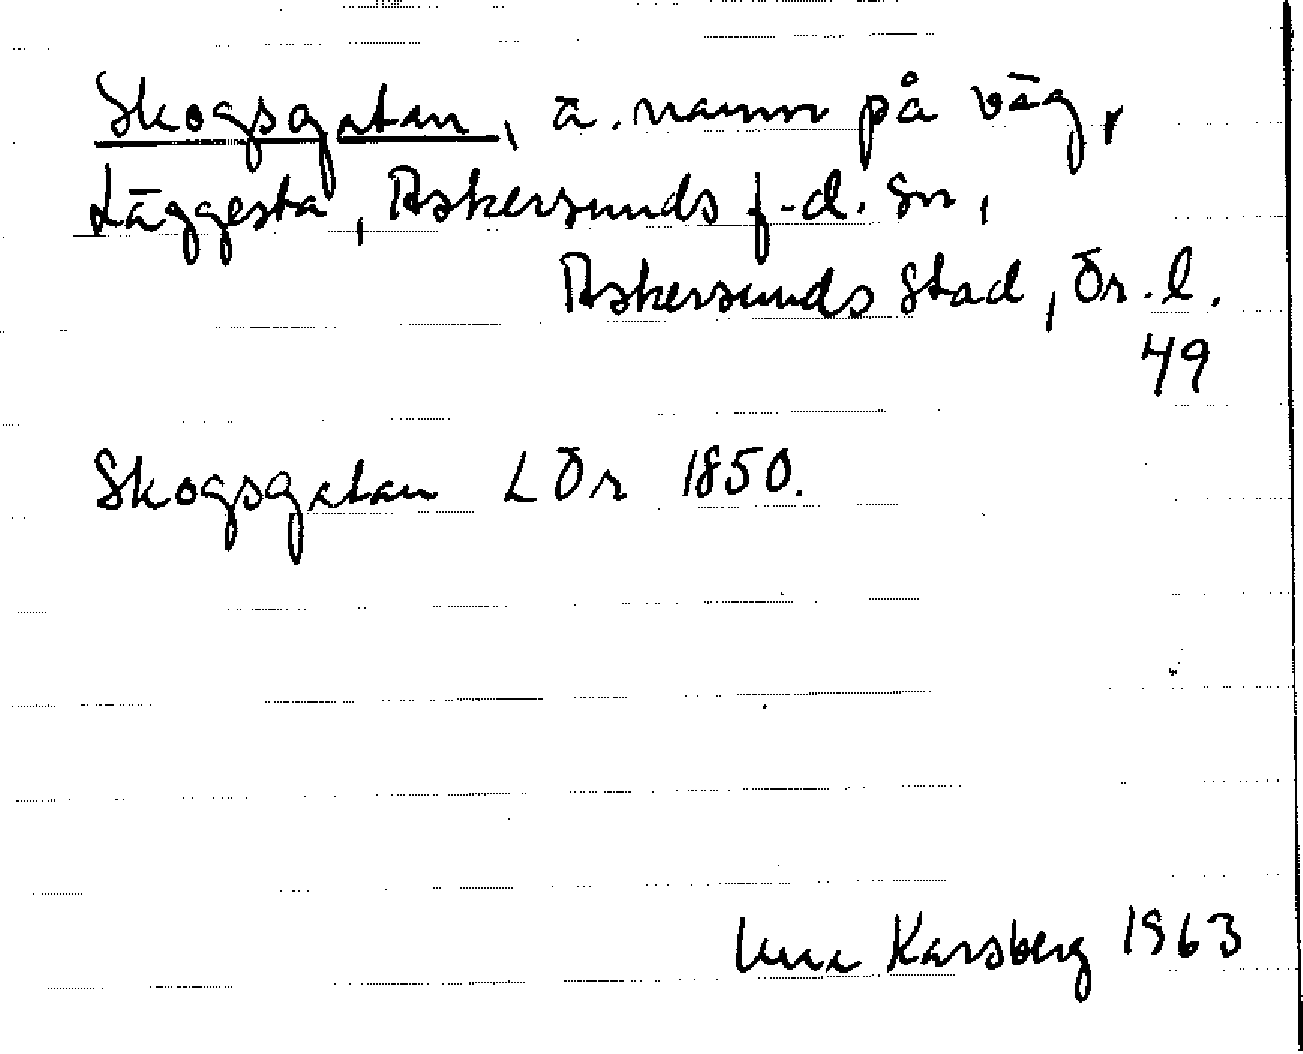 Skogsgatan, ä. namn på väg,
Läggesta, Askersunds f.d. sn,
Askersunds stad, Ör. l.
49
Skogsgatan L Ör 1850.
Karsberg 1963